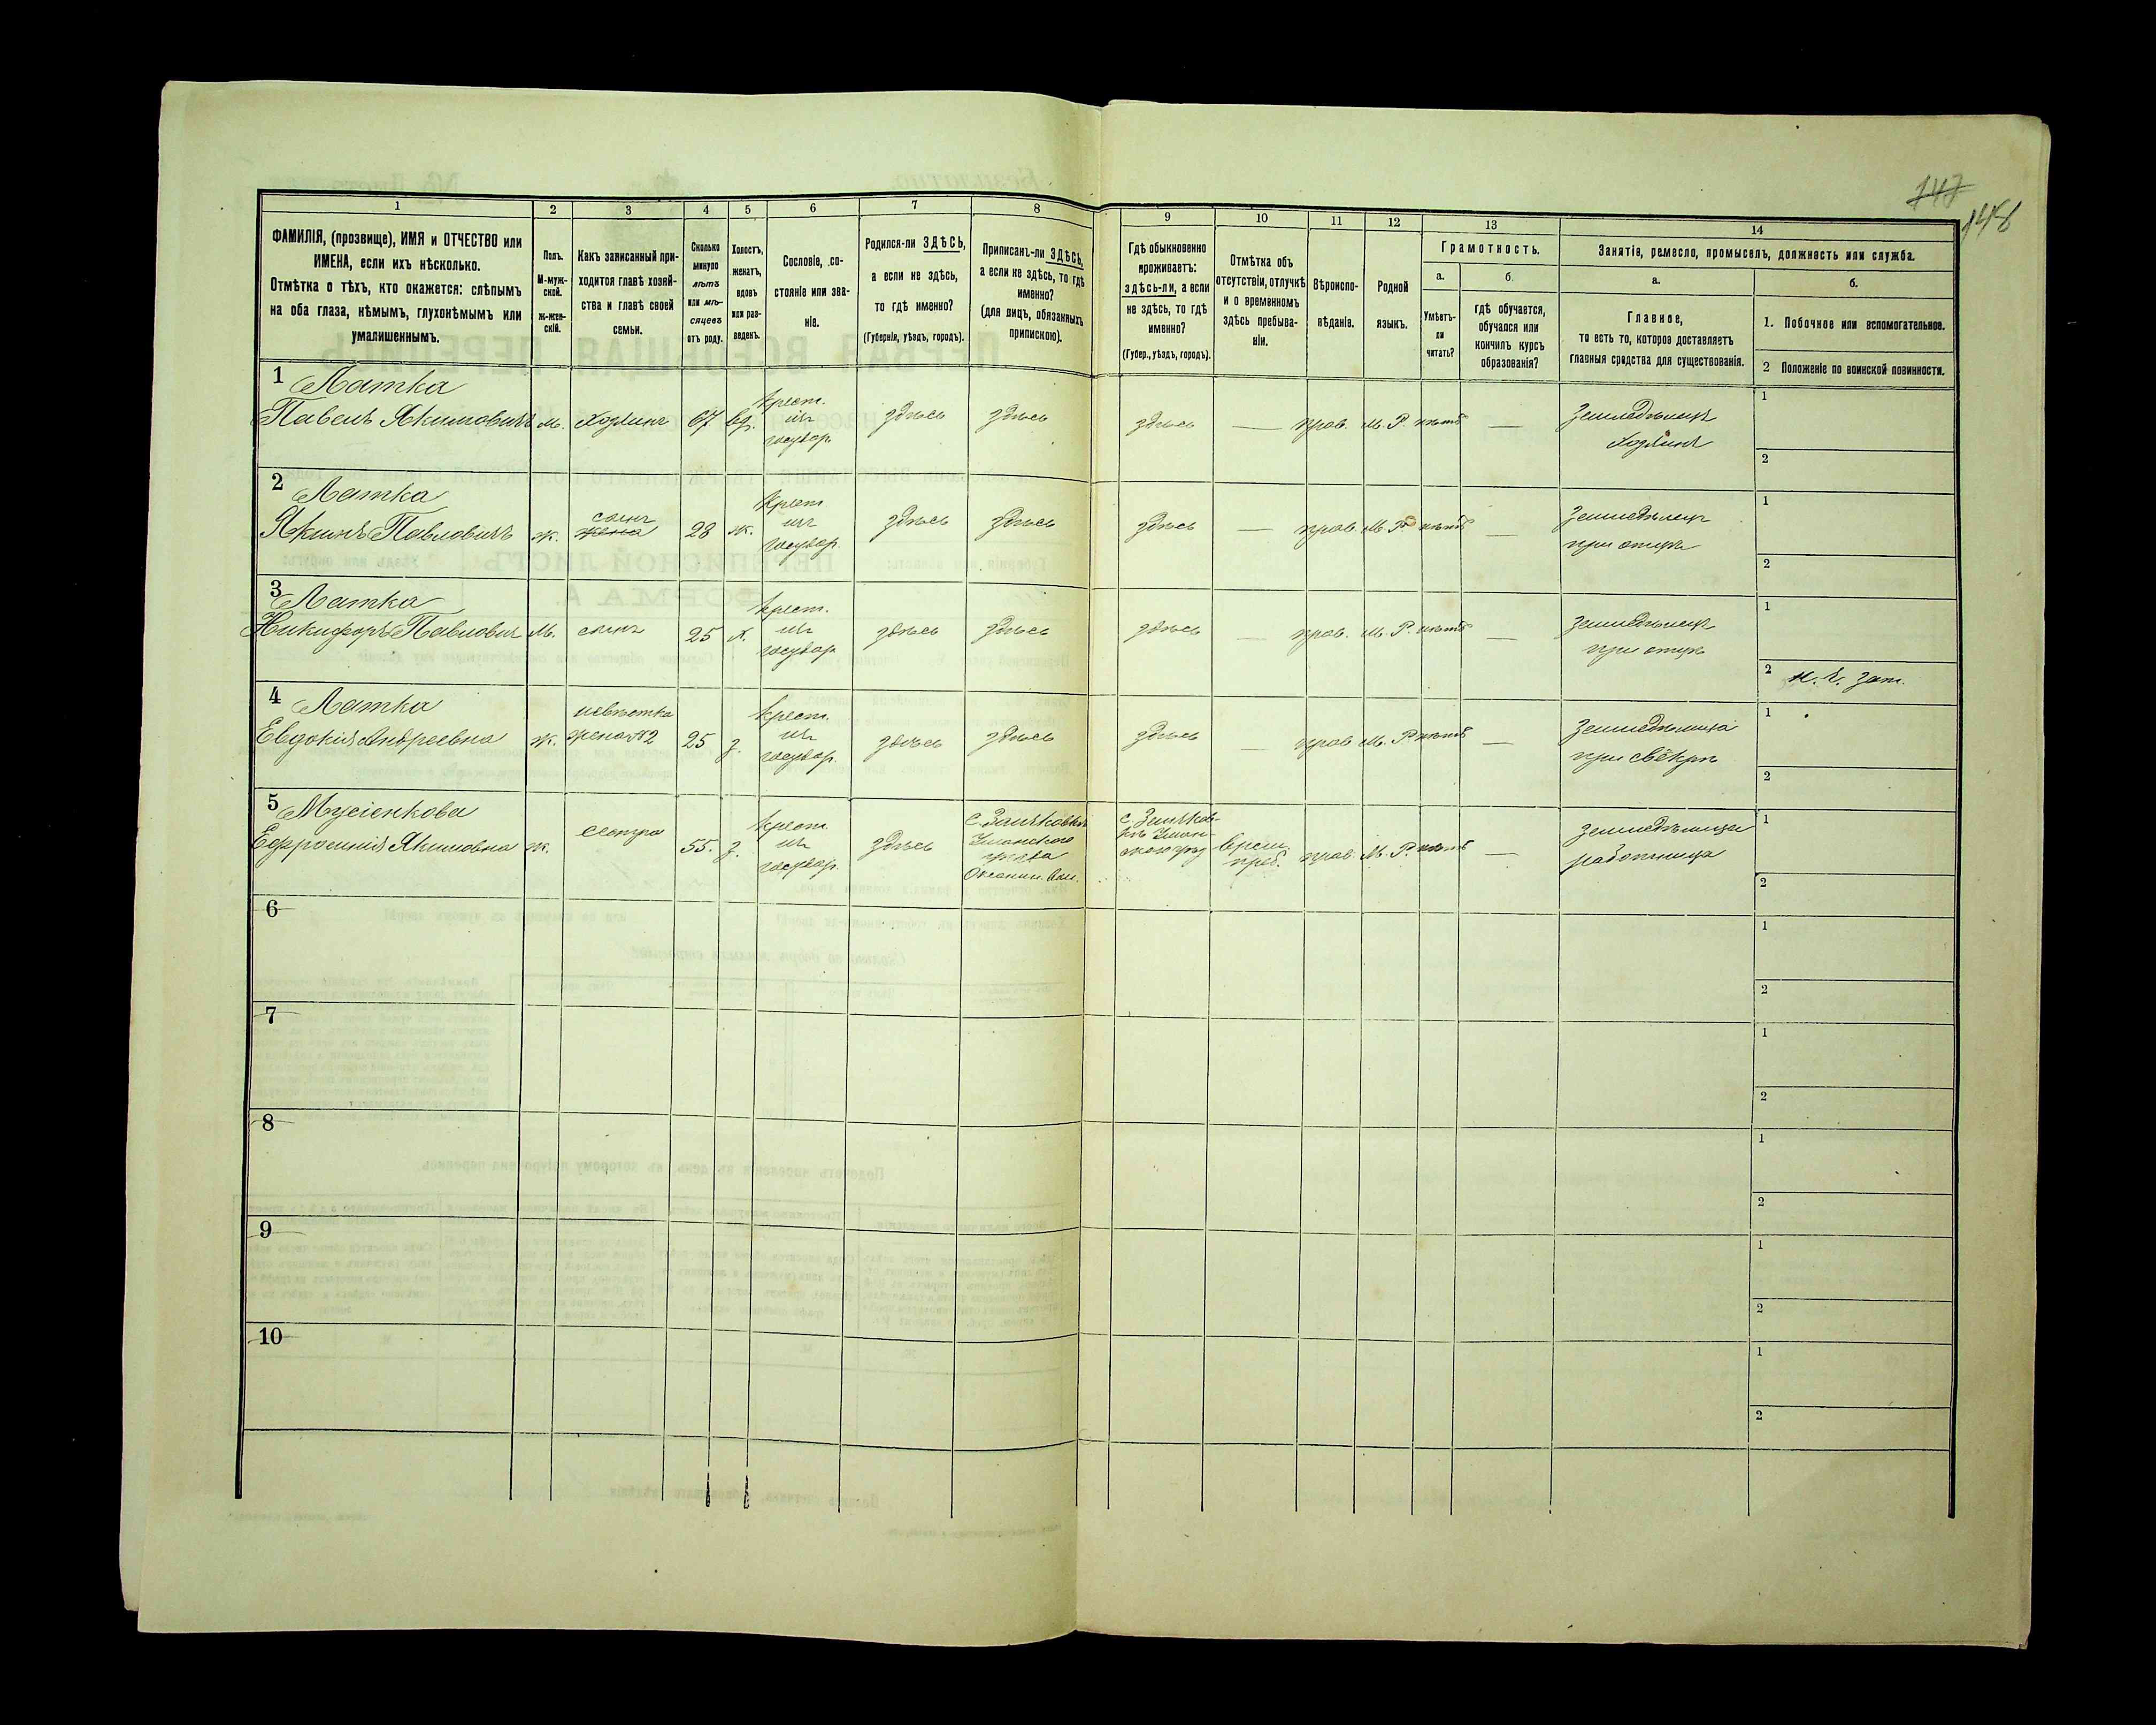 147
148
1
2
3
4
5
6
7
8
9
10
11
12
13
14
ФАМИЛІЯ, (прозвище), ИМЯ и ОТЧЕСТВО или
ИМЕНА, если ихъ нѣсколько.
Отмѣтка о тѣхъ, кто окажется: слѣпымъ
на оба глаза, нѣмымъ, глухонѣмымъ или
умалишеннымъ.
Полъ.
М-муж-
ской.
ж-жен-
скій.
Какъ записанный при-
ходится главѣ хозяй-
ства и главѣ своей
семьи.
Сколько
минуло
лѣтъ
или мѣ-
сяцевъ
отъ роду.
Холостъ,
женатъ,
вдовъ
или раз-
веденъ.
Сословіе, со-
стояніе или зва-
ніе.
Родился-ли ЗДѢСЬ,
а если не здѣсь,
то гдѣ именно?
(Губернія, уѣздъ, городъ).
Приписанъ-ли ЗДѢСЬ,
а если не здѣсь, то гдѣ
именно?
(для лицъ, обязанныхъ
припискою).
Гдѣ обыкновенно
проживаетъ:
здѣсь-ли, а если
не здѣсь, то гдѣ
именно?
(Губер., уѣздъ, городъ).
Отмѣтка объ
отсутствіи, отлучкѣ
и о временномъ
здѣсь пребыва-
ніи.
Вѣроиспо-
вѣданіе.
Родной
языкъ.
Грамотность.
а.
Умѣетъ-
ли
читать?
б.
гдѣ обучается,
обучался или
кончилъ курсъ
образованія?
Занятіе, ремесло, промыселъ, должность или служба.
а.
Главное,
то есть то, которое доставляетъ
главныя средства для существованія.
б.
1. Побочное или вспомогательное.
2 Положеніе по воинской повинности.
1 Латка
Павелъ Якимовичъ м. хозяинъ 67 вд. крест. изъ государ. здѣсь здѣсь здѣсь — прав. М. Р. нѣтъ — Земледѣлецъ
хозяинъ
1
2
2 Латка
Якимъ Павловичъ ж. жена сынъ 28 ж. крест. изъ государ. здѣсь здѣсь здѣсь — прав. М. Р. нѣтъ — Земледѣлецъ
при отцѣ
1
2
3 Латка
Никифоръ Павлович М. сынъ 25 х. крест. изъ государ. здѣсь здѣсь здѣсь — прав. М. Р. нѣтъ — Земледѣлецъ
при отцѣ
1
2
4 Латка
Евдокія Андреевна ж. невѣстка жена №2 25 з. крест. изъ государ. здѣсь здѣсь здѣсь — прав. М. Р. нѣтъ — Земледѣлица
при свёкрѣ
1
2
5 Мусіенкова
Ефросинія Якимовна ж. сестра 55. з. крест. изъ государ. здѣсь
Уманского
прав. М. Р. нѣтъ — Земледѣлица
работница
1
2
6
1
2
7
1
2
8
1
2
9
1
2
10
1
2